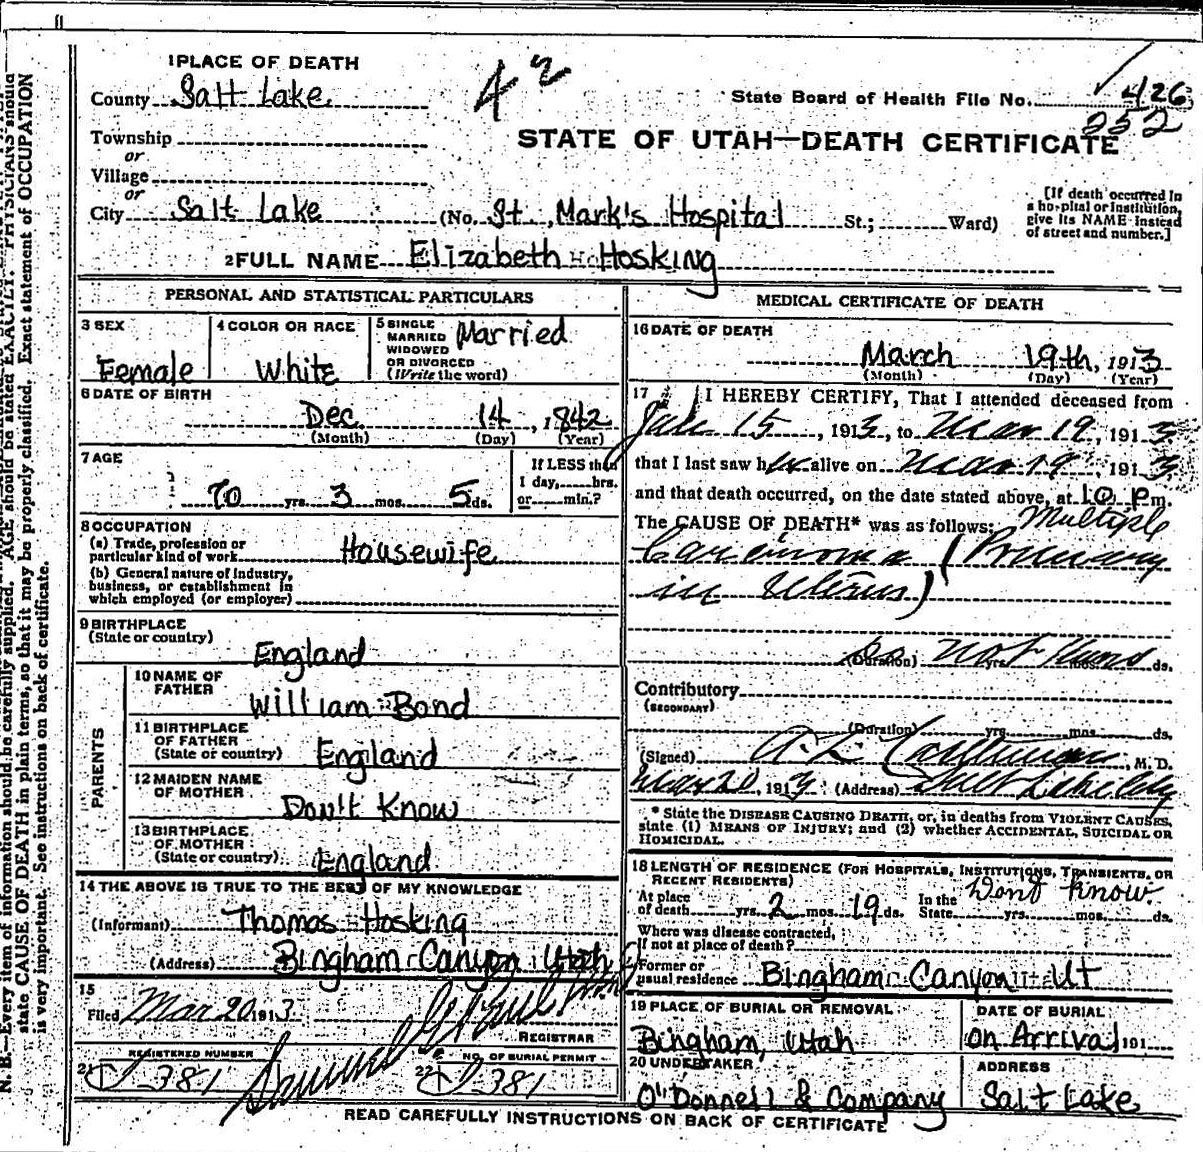 1 PLACE OF DEATH
County Salt Lake
Township
or
Village
or
City Salt Lake (No. St. Mark's Hospital St.; Ward)
42
State Board of Health File No. 426
252
STATE OF UTAH—DEATH CERTIFICATE
[If death occurred in
a hospital or institution,
give its NAME instead
of street and number.]
2 FULL NAME Elizabeth Hosking
PERSONAL AND STATISTICAL PARTICULARS
3 SEX
Female
4 COLOR OR RACE
White
5 SINGLE
MARRIED
WIDOWED
OR DIVORCED
(Write the word)
Married
6 DATE OF BIRTH
Dec. 14, 1842
(Month) (Day) (Year)
7 AGE
70 yrs. 3 mos. 5 ds.
If LESS than
1 day, hrs.
or min.?
8 OCCUPATION
(a) Trade, profession or
particular kind of work Housewife
(b) General nature of industry,
business, or establishment in
which employed (or employer)
9 BIRTHPLACE
(State or country)
England
PARENTS
10 NAME OF
FATHER
William Bond
11 BIRTHPLACE
OF FATHER
(State or country) England
12 MAIDEN NAME
OF MOTHER
Don't Know
13 BIRTHPLACE
OF MOTHER
(State or country) England
14 THE ABOVE IS TRUE TO THE BEST OF MY KNOWLEDGE
(Informant) Thomas Hosking
(Address) Bingham Canyon Utah
15
Filed Mar 20 1913
REGISTRAR
REGISTERED NUMBER
21 381
NO. OF BURIAL PERMIT
22 381
MEDICAL CERTIFICATE OF DEATH
16 DATE OF DEATH
March 19th, 1913
(Month) (Day) (Year)
17 I HEREBY CERTIFY, That I attended deceased from
Jan 15, 1913, to Mar 19, 1913,
that I last saw her alive on Mar 19 1913,
and that death occurred, on the date stated above, at 10 Pm.
The CAUSE OF DEATH* was as follows: Multiple
Carcinoma (Primary
in Uterus)
(Duration) Do not Know yrs. mos. ds.
Contributory
(SECONDARY)
(Duration) yrs. mos. ds.
(Signed) A. L. M. D.
Mar 20, 1913 (Address) Salt Lake City
* State the DISEASE CAUSING DEATH, or, in deaths from VIOLENT CAUSES,
state (1) MEANS OF INJURY; and (2) whether ACCIDENTAL, SUICIDAL OR
HOMICIDAL.
18 LENGTH OF RESIDENCE (FOR HOSPITALS, INSTITUTIONS, TRANSIENTS, OR
RECENT RESIDENTS)
At place
of death yrs. 2 mos. 19 ds.
In the
State yrs. mos. ds.
Dont Know.
Where was disease contracted,
if not at place of death?
Former or
usual residence Bingham Canyon Ut
19 PLACE OF BURIAL OR REMOVAL
Bingham, Utah
DATE OF BURIAL
On Arrival 191
20 UNDERTAKER
O'Donnell & Company
ADDRESS
Salt Lake
READ CAREFULLY INSTRUCTIONS ON BACK OF CERTIFICATE
N. B.—Every item of information should be carefully supplied. AGE should be stated EXACTLY. PHYSICIANS should
state CAUSE OF DEATH in plain terms, so that it may be properly classified. Exact statement of OCCUPATION
is very important. See instructions on back of certificate.